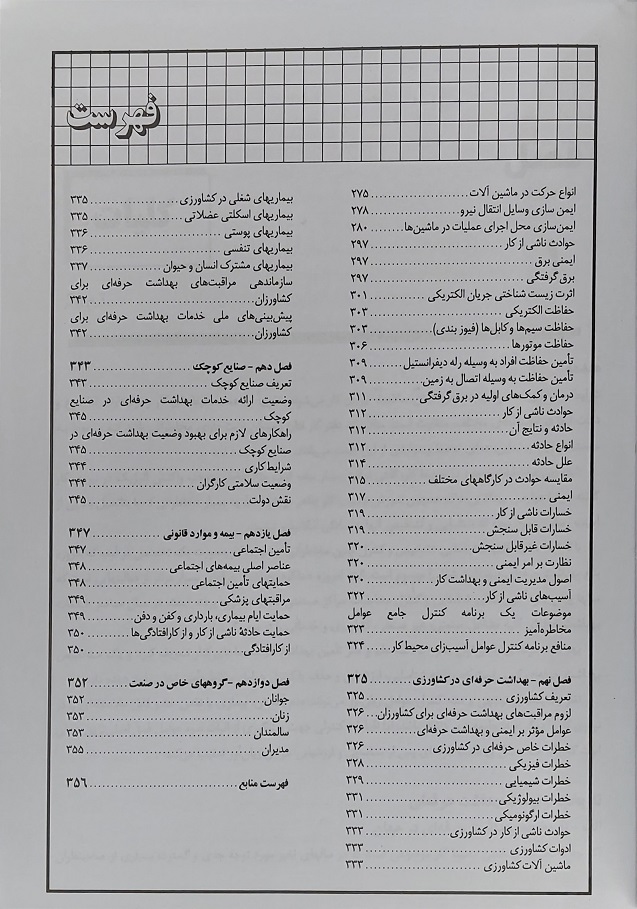 فهرست
انواع حرکت در ماشین آلات ............ ۲۷۵
ایمن سازی وسایل انتقال نیرو ............ ۲۷۸
ایمن‌سازی محل اجرای عملیات در ماشین‌ها ............ ۲۸۰
حوادث ناشی از کار ............ ۲۹۷
ایمنی برق ............ ۲۹۷
برق گرفتگی ............ ۲۹۷
اثرت زیست شناختی جریان الکتریکی ............ ۳۰۱
حفاظت الکتریکی ............ ۳۰۳
حفاظت سیم‌ها و کابل‌ها (فیوز بندی) ............ ۳۰۳
حفاظت موتورها ............ ۳۰۶
تأمین حفاظت افراد به وسیله رله دیفرانستیل ............ ۳۰۹
تأمین حفاظت به وسیله اتصال به زمین ............ ۳۰۹
درمان و کمک‌های اولیه در برق گرفتگی ............ ۳۱۱
حوادث ناشی از کار ............ ۳۱۲
حادثه و نتایج آن ............ ۳۱۲
انواع حادثه ............ ۳۱۲
علل حادثه ............ ۳۱۴
مقایسه حوادث در کارگاههای مختلف ............ ۳۱۵
ایمنی ............ ۳۱۷
خسارات ناشی از کار ............ ۳۱۹
خسارات قابل سنجش ............ ۳۱۹
خسارات غیرقابل سنجش ............ ۳۲۰
نظارت بر امر ایمنی ............ ۳۲۰
اصول مدیریت ایمنی و بهداشت کار ............ ۳۲۰
آسیب‌های ناشی از کار ............ ۳۲۲
موضوعات یک برنامه کنترل جامع عوامل
مخاطره‌آمیز ............ ۳۲۳
منافع برنامه کنترل عوامل آسیب‌زای محیط کار ............ ۳۲۴
فصل نهم - بهداشت حرفه‌ای در کشاورزی ............ ۳۲۵
تعریف کشاورزی ............ ۳۲۵
لزوم مراقبت‌های بهداشت حرفه‌ای برای کشاورزان ... ۳۲۶
عوامل مؤثر بر ایمنی و بهداشت حرفه‌ای ............ ۳۲۶
خطرات خاص حرفه‌ای در کشاورزی ............ ۳۲۶
خطرات فیزیکی ............ ۳۲۸
خطرات شیمیایی ............ ۳۲۹
خطرات بیولوژیکی ............ ۳۳۱
خطرات ارگونومیکی ............ ۳۳۱
حوادث ناشی از کار در کشاورزی ............ ۳۳۳
ادوات کشاورزی ............ ۳۳۳
ماشین آلات کشاورزی ............ ۳۳۳
بیماریهای شغلی در کشاورزی ............ ۳۳۵
بیماریهای اسکلتی عضلاتی ............ ۳۳۵
بیماریهای پوستی ............ ۳۳۶
بیماریهای تنفسی ............ ۳۳۶
بیماریهای مشترک انسان و حیوان ............ ۳۳۷
سازماندهی مراقبت‌های بهداشت حرفه‌ای برای
کشاورزان ............ ۳۴۲
پیش‌بینی‌های ملی خدمات بهداشت حرفه‌ای برای
کشاورزان ............ ۳۴۲
فصل دهم - صنایع کوچک ............ ۳۴۳
تعریف صنایع کوچک ............ ۳۴۳
وضعیت ارائه خدمات بهداشت حرفه‌ای در صنایع
کوچک ............ ۳۴۵
راهکارهای لازم برای بهبود وضعیت بهداشت حرفه‌ای در
صنایع کوچک ............ ۳۴۵
شرایط کاری ............ ۳۴۴
وضعیت سلامتی کارگران ............ ۳۴۴
نقش دولت ............ ۳۴۵
فصل یازدهم - بیمه و موارد قانونی ............ ۳۴۷
تأمین اجتماعی ............ ۳۴۷
عناصر اصلی بیمه‌های اجتماعی ............ ۳۴۸
حمایتهای تأمین اجتماعی ............ ۳۴۸
مراقبتهای پزشکی ............ ۳۴۹
حمایت ایام بیماری، بارداری و کفن و دفن ............ ۳۴۹
حمایت حادثهٔ ناشی از کار و از کارافتادگی‌ها ............ ۳۵۰
از کارافتادگی ............ ۳۵۰
فصل دوازدهم - گروههای خاص در صنعت ............ ۳۵۲
جوانان ............ ۳۵۲
زنان ............ ۳۵۳
سالمندان ............ ۳۵۳
مدیران ............ ۳۵۵
فهرست منابع ............ ۳۵۶